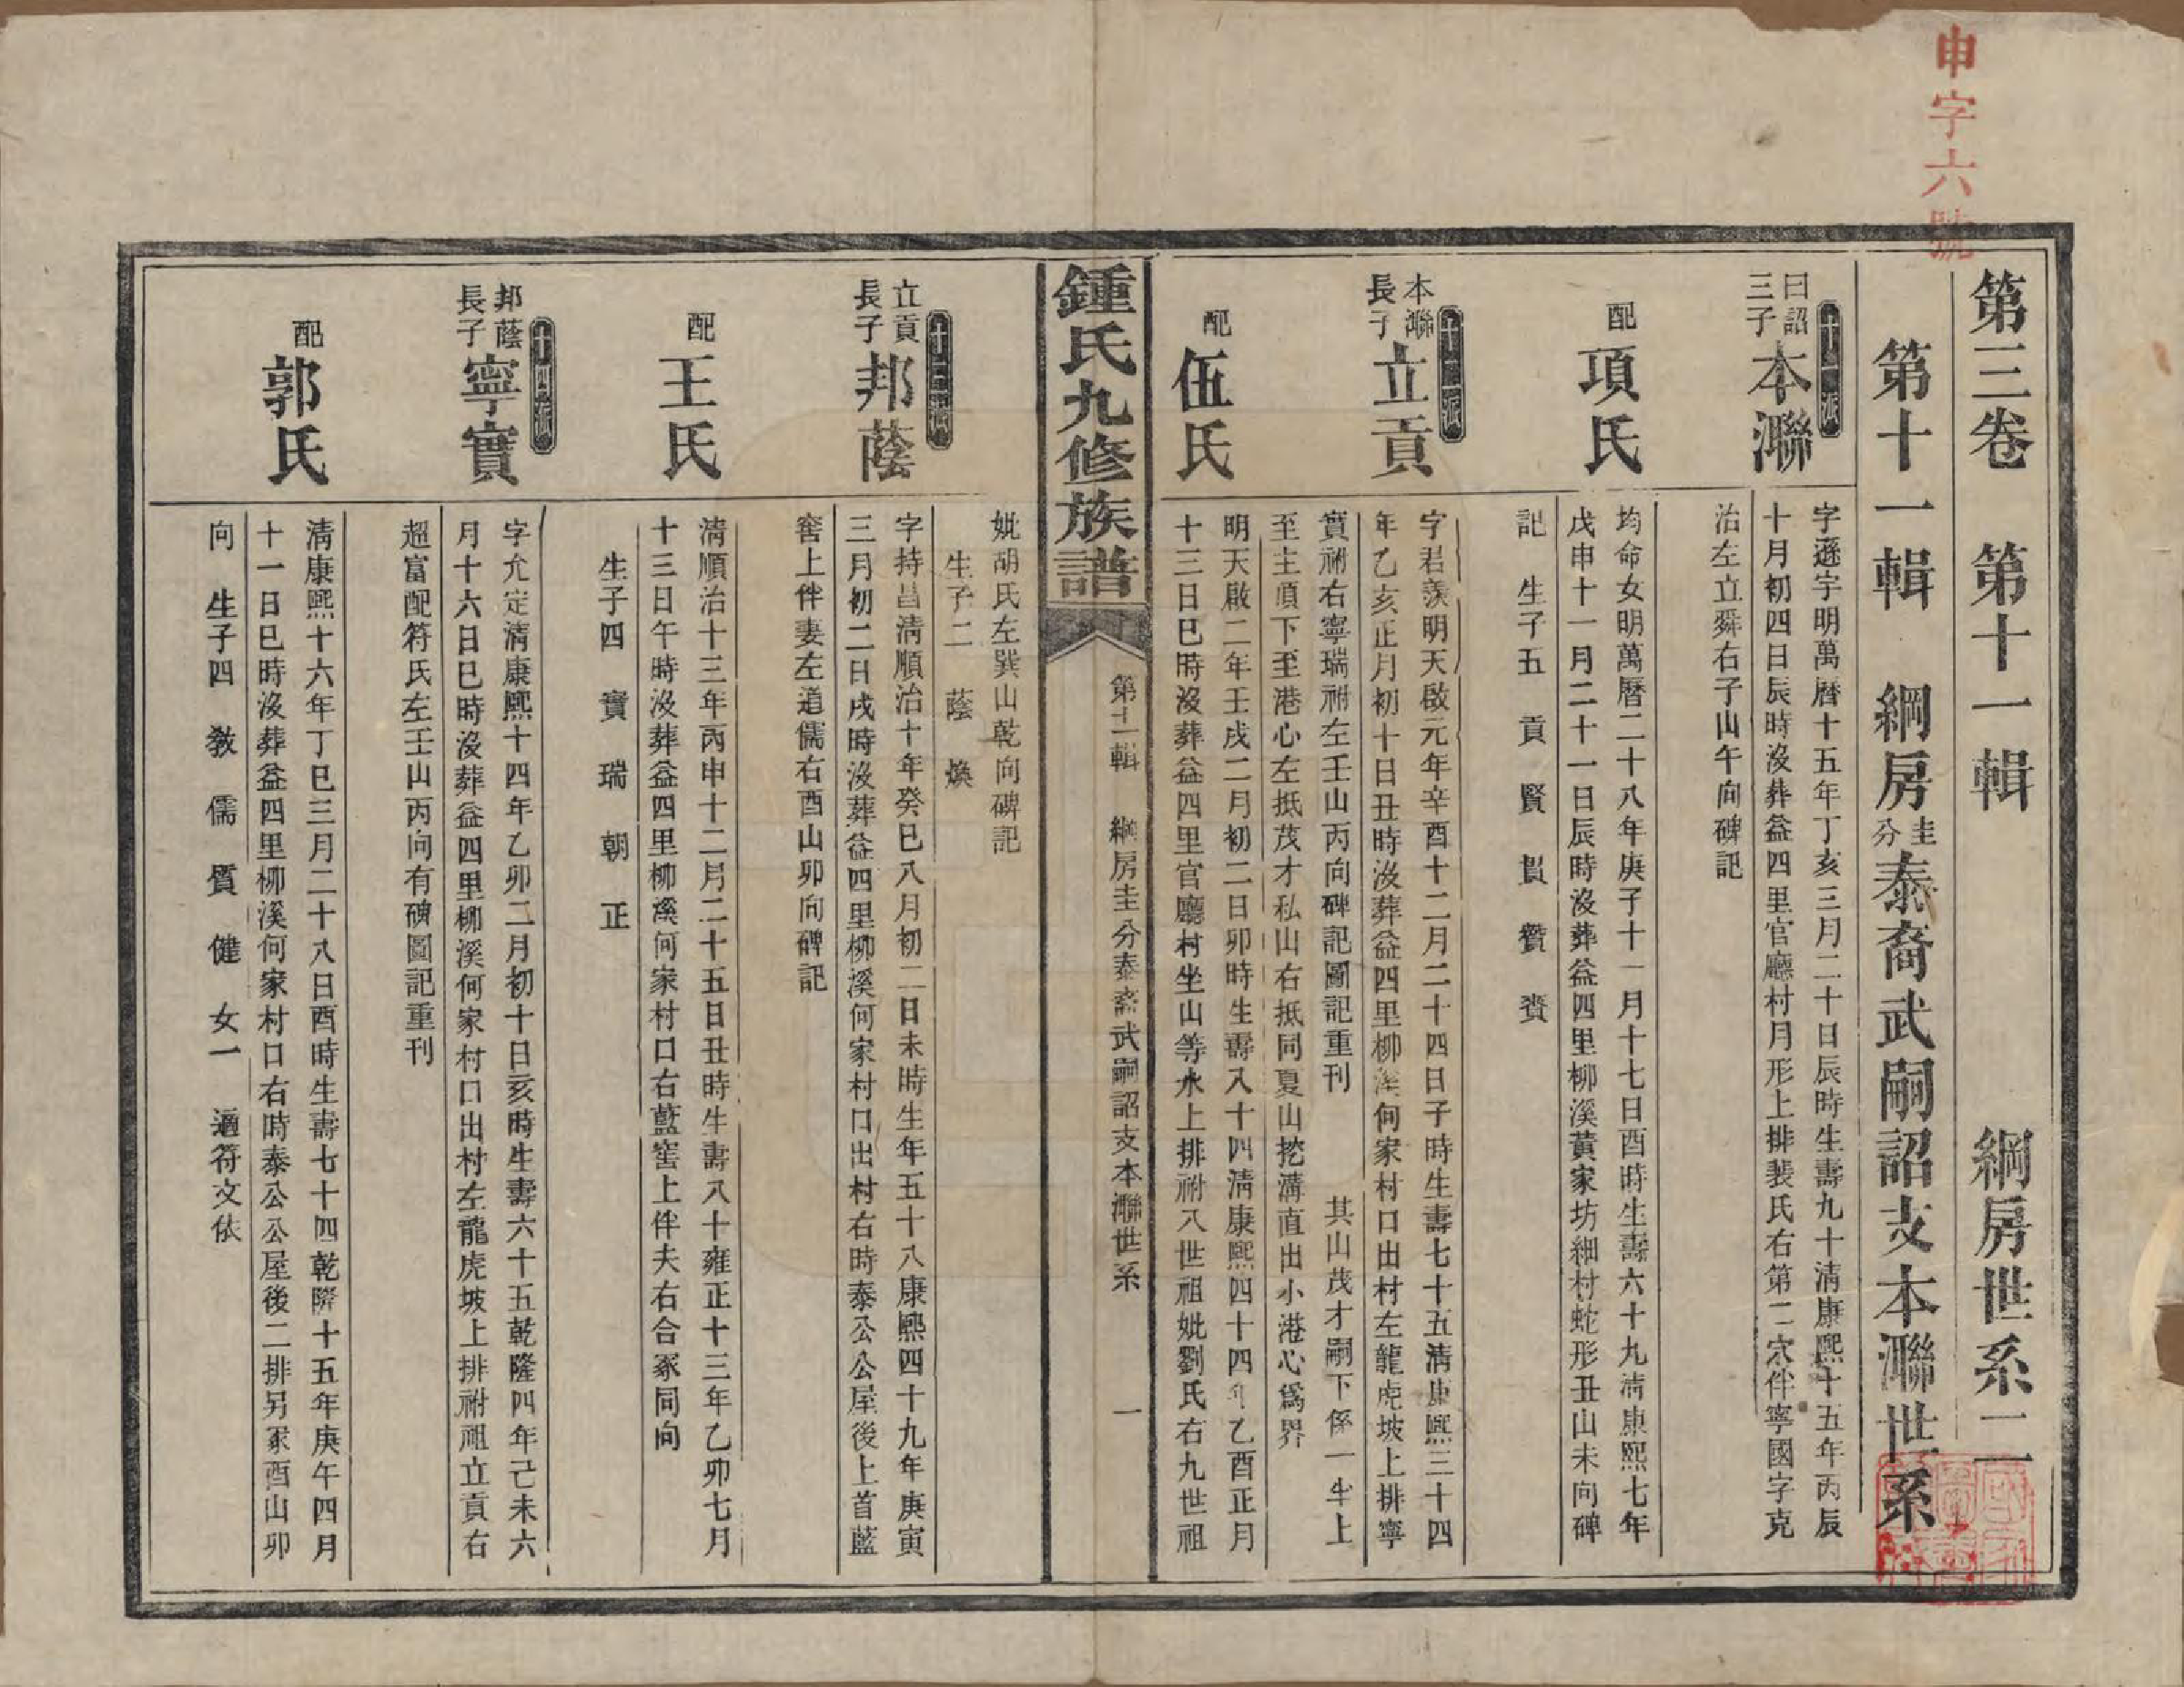 申字六號
第三卷　第十一輯　綱房世系二
第十一輯　綱房圭分泰裔武嗣詔支本濰世系
十一派
曰詔三子　本聯
字遜宇明萬曆十五年丁亥三月二十日辰時生壽九十清康熙十五年丙辰
十月初四日辰時沒葬益四里官廳村月形上排裴氏右第二穴伴寧國字克
治左立舜右子山午向碑記
配　項氏
均命女明萬曆二十八年庚子十一月十七日酉時生壽六十九清康熙七年
戊申十一月二十一日辰時沒葬益四里柳溪黃家坊細村蛇形丑山未向碑
記　生子五　貢　賢　貫　贊　賚
十二派
本聯長子　立貢
字君羨明天啟元年辛酉十二月二十四日子時生壽七十五清康熙三十四
年乙亥正月初十日丑時沒葬益四里柳溪何家村口出村左龍虎坡上排寧
實祔右寧瑞祔左壬山丙向碑記圖記重刊　其山茂才嗣下係一半上
至主頂下至港心左抵茂才私山右抵同夏山挖溝直出小港心為界
配　伍氏
明天啟二年壬戌二月初二日卯時生壽八十四清康熙四十四年乙酉正月
十三日巳時沒葬益四里官廳村坐山等水上排祔八世祖妣劉氏右九世祖
鍾氏九修族譜　第十一輯　綱房圭分泰裔武嗣詔支本聯世系　一
妣胡氏左巽山乾向碑記
生子二　蔭　煥
十三派
立貢長子　邦蔭
字持昌清順治十年癸巳八月初二日未時生年五十八康熙四十九年庚寅
三月初二日戌時沒葬益四里柳溪何家村口出村右時泰公公屋後上首藍
窖上伴妻左道儒右酉山卯向碑記
配　王氏
清順治十三年丙申十二月二十五日丑時生壽八十雍正十三年乙卯七月
十三日午時沒葬益四里柳溪何家村口右藍窖上伴夫右合冢同向
生子四　實　瑞　朝　正
十四派
邦蔭長子　寧實
字允定清康熙十四年乙卯二月初十日亥時生壽六十五乾隆四年己未六
月十六日巳時沒葬益四里柳溪何家村口出村左龍虎坡上排祔祖立貢右
超富配符氏左壬山丙向有碑圖記重刊
配　郭氏
清康熙十六年丁巳三月二十八日酉時生壽七十四乾隆十五年庚午四月
十一日巳時沒葬益四里柳溪何家村口右時泰公公屋後二排另冢酉山卯
向　生子四　教　儒　質　健　女一　適符文依